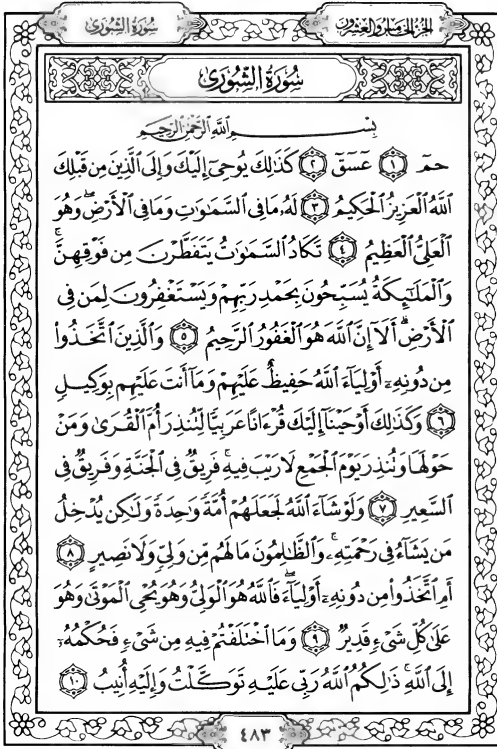 سُورَةُ الشُّورَىٰ
الجُزْءُ الخَامِسُ وَالعِشْرُونَ
سُورَةُ الشُّورَىٰ
بِسْمِ ٱللَّهِ ٱلرَّحْمَٰنِ ٱلرَّحِيمِ
حمٓ ١ عٓسٓقٓ ٢ كَذَٰلِكَ يُوحِىٓ إِلَيْكَ وَإِلَى ٱلَّذِينَ مِن قَبْلِكَ
ٱللَّهُ ٱلْعَزِيزُ ٱلْحَكِيمُ ٣ لَهُۥ مَا فِى ٱلسَّمَٰوَٰتِ وَمَا فِى ٱلْأَرْضِ ۖ وَهُوَ
ٱلْعَلِىُّ ٱلْعَظِيمُ ٤ تَكَادُ ٱلسَّمَٰوَٰتُ يَتَفَطَّرْنَ مِن فَوْقِهِنَّ ۚ
وَٱلْمَلَٰٓئِكَةُ يُسَبِّحُونَ بِحَمْدِ رَبِّهِمْ وَيَسْتَغْفِرُونَ لِمَن فِى
ٱلْأَرْضِ ۗ أَلَآ إِنَّ ٱللَّهَ هُوَ ٱلْغَفُورُ ٱلرَّحِيمُ ٥ وَٱلَّذِينَ ٱتَّخَذُوا۟
مِن دُونِهِۦٓ أَوْلِيَآءَ ٱللَّهُ حَفِيظٌ عَلَيْهِمْ وَمَآ أَنتَ عَلَيْهِم بِوَكِيلٍ
٦ وَكَذَٰلِكَ أَوْحَيْنَآ إِلَيْكَ قُرْءَانًا عَرَبِيًّا لِّتُنذِرَ أُمَّ ٱلْقُرَىٰ وَمَنْ
حَوْلَهَا وَتُنذِرَ يَوْمَ ٱلْجَمْعِ لَا رَيْبَ فِيهِ ۚ فَرِيقٌ فِى ٱلْجَنَّةِ وَفَرِيقٌ فِى
ٱلسَّعِيرِ ٧ وَلَوْ شَآءَ ٱللَّهُ لَجَعَلَهُمْ أُمَّةً وَٰحِدَةً وَلَٰكِن يُدْخِلُ
مَن يَشَآءُ فِى رَحْمَتِهِۦ ۚ وَٱلظَّٰلِمُونَ مَا لَهُم مِّن وَلِىٍّ وَلَا نَصِيرٍ ٨
أَمِ ٱتَّخَذُوا۟ مِن دُونِهِۦٓ أَوْلِيَآءَ ۖ فَٱللَّهُ هُوَ ٱلْوَلِىُّ وَهُوَ يُحْىِ ٱلْمَوْتَىٰ وَهُوَ
عَلَىٰ كُلِّ شَىْءٍ قَدِيرٌ ٩ وَمَا ٱخْتَلَفْتُمْ فِيهِ مِن شَىْءٍ فَحُكْمُهُۥٓ
إِلَى ٱللَّهِ ۚ ذَٰلِكُمُ ٱللَّهُ رَبِّى عَلَيْهِ تَوَكَّلْتُ وَإِلَيْهِ أُنِيبُ ١٠
٤٨٣